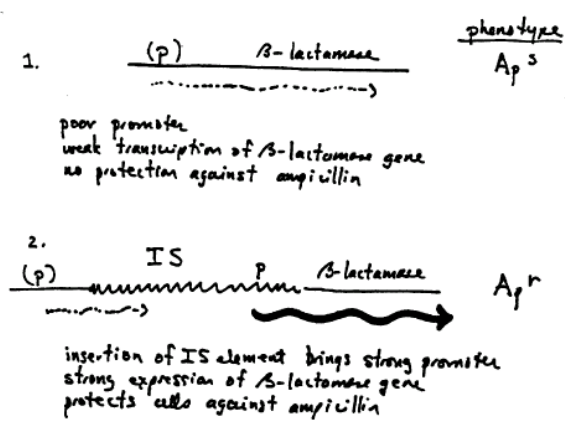 phenotype
1. (p) β-lactamase Ap s
poor promoter
weak transcription of β-lactamase gene
no protection against ampicillin
2.
IS
(p) P β-lactamase Ap r
insertion of IS element brings strong promoter
strong expression of β-lactamase gene
protects cells against ampicillin